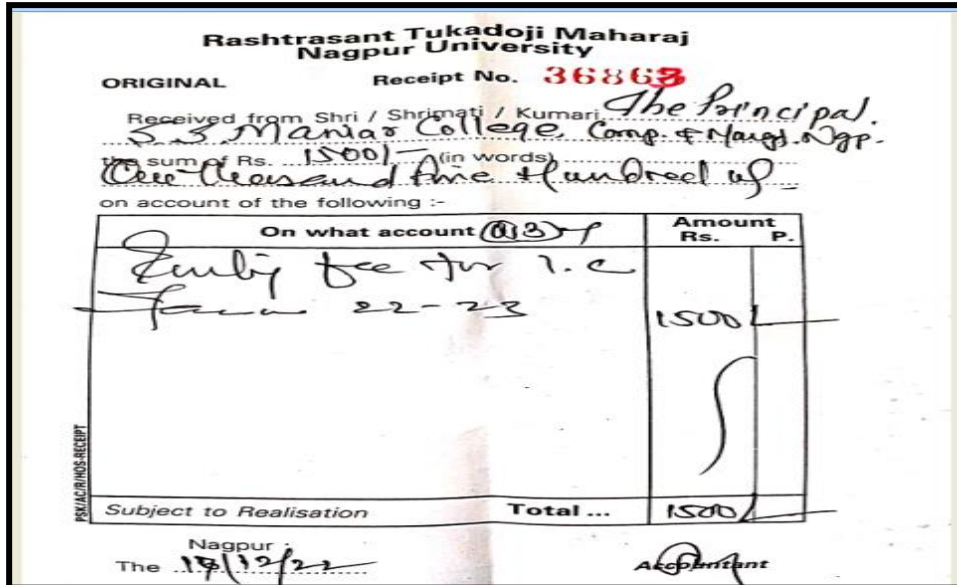 Rashtrasant Tukadoji Maharaj
Nagpur University
ORIGINAL Receipt No. 36863
Received from Shri / Shrimati / Kumari The Principal.
S. S. Maniar College, Comp. & Mangt. Ngp.
the sum of Rs. 1500/- (in words)
One thousand five Hundred
on account of the following :-
On what account Amount
Rs. P.
fee for I.C
22-23 1500/-
Subject to Realisation Total ... 1500/-
Nagpur :
The /12/22 Accountant
PSK/AC/R/HOS-RECEIPT